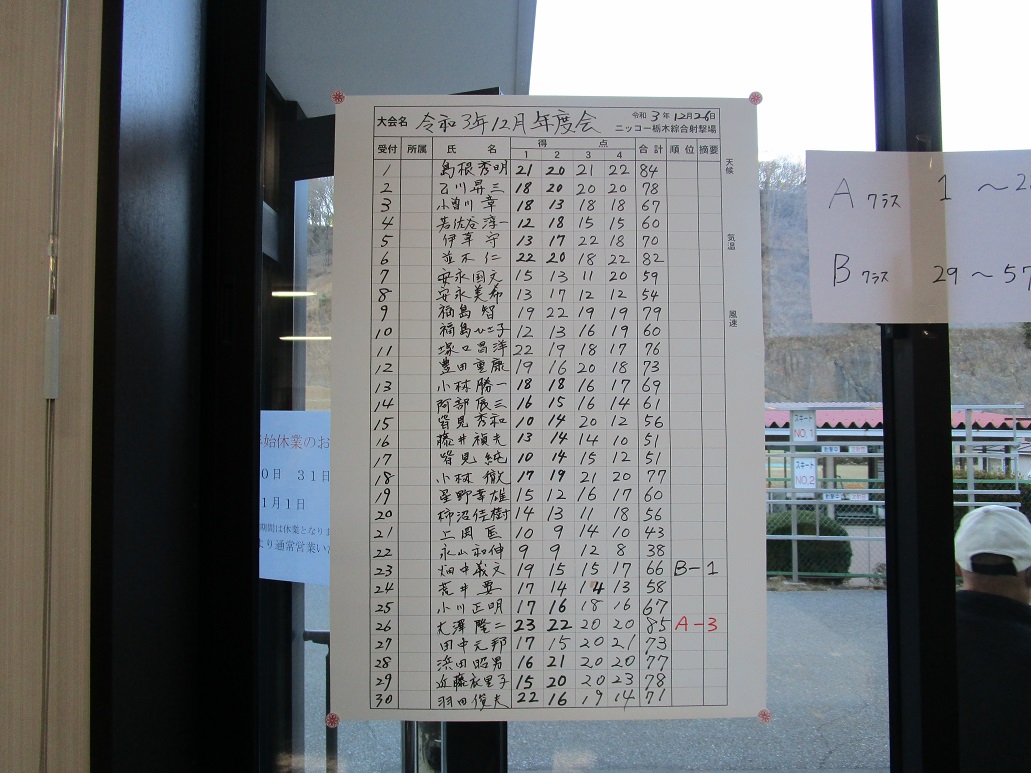 大会名 令和3年12月年度会 令和 3年12月26日
ニッコー栃木綜合射撃場
受付 所属 氏名 得点 合計 順位 摘要
1 2 3 4
1 島根秀明 21 20 21 22 84
2 石川昇三 18 20 20 20 78
3 小曽川章 18 13 18 18 67
4 若佐谷淳一 12 18 15 15 60
5 伊草守 13 17 22 18 70
6 並木仁 22 20 18 22 82
7 安永国元 15 13 11 20 59
8 安永美希 13 17 12 12 54
9 福島智 19 22 19 19 79
10 福島ひこ子 12 13 16 19 60
11 塚口昌洋 22 19 18 17 76
12 豊田重康 19 16 20 18 73
13 小林勝一 18 18 16 17 69
14 阿部辰三 16 15 16 14 61
15 皆見秀和 10 14 20 12 56
16 藤井禎光 13 14 14 10 51
17 皆見純 10 14 15 12 51
18 小林徹 17 19 21 20 77
19 星野幸雄 15 12 16 17 60
20 柿沼佳樹 14 13 11 18 56
21 上岡 10 9 14 10 43
22 永山和伸 9 9 12 8 38
23 畑中義文 19 15 15 17 66 B-1
24 荒井 17 14 14 13 58
25 小川正明 17 16 18 16 67
26 大澤隆二 23 22 20 20 85 A-3
27 田中元邦 17 15 20 21 73
28 浜田昭男 16 21 20 20 77
29 近藤衣里子 15 20 20 23 78
30 羽田俊夫 22 16 19 14 71
天候
気温
風速
Aクラス 1～2
Bクラス 29～57
始休業のお
0日 31日
1月1日
期間は休業となりま
より通常営業い
スキート
NO.1
スキート
NO.2